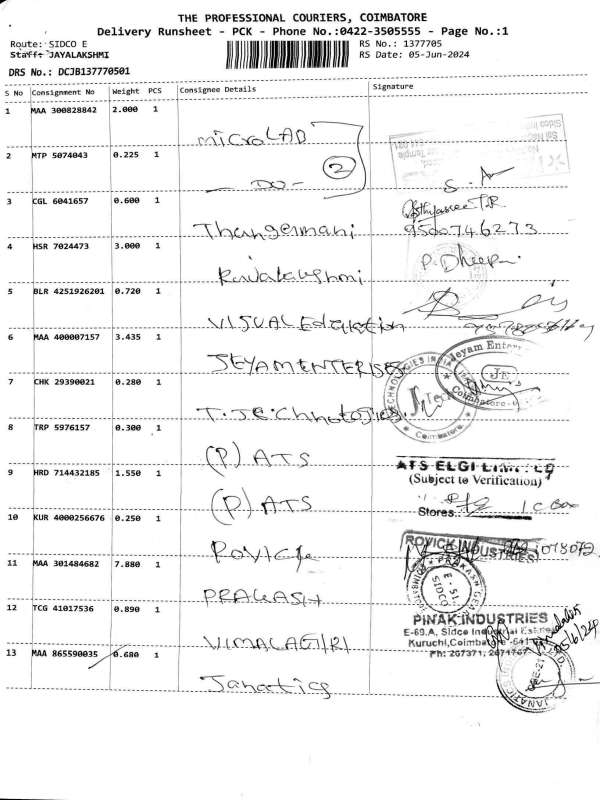 THE PROFESSIONAL COURIERS, COIMBATORE
Delivery Runsheet - PCK - Phone No.:0422-3505555 - Page No.:1
Route: SIDCO E
RS No.: 1377705
Staff: JAYALAKSHMI
RS Date: 05-Jun-2024
DRS No.: DCJB137770501
S No Consignment No Weight PCS Consignee Details Signature
1 MAA 300828842 2.000 1
microLAD
2 MTP 5074043 0.225 1
2
- DO -
S. A
3 CGL 6041657 0.600 1
Thangamani
9500746273
4 HSR 7024473 3.000 1
P. Dheep
5 BLR 4251926201 0.720 1
VISUAL Education
6 MAA 400007157 3.435 1
JEYAM ENTERISES
Jeyam Enter
JE
Coimbatore
7 CHK 29390021 0.280 1
TECHNOLOGIES
Coimbatore
8 TRP 5976157 0.300 1
(P) ATS
9 HRD 714432185 1.550 1
(P) ATS
ATS ELGI LIMITED
(Subject to Verification)
Stores
1 C Box
10 KUR 4000256676 0.250 1
ROVICK
ROVICK INDUSTRIES
11 MAA 301484682 7.880 1
PRAKASH
SIDCO
12 TCG 41017536 0.890 1
VIMALAGIRI
PINAK INDUSTRIES
E-69.A, Sidco Industrial Estate
Kuruchi,Coimbatore -641
Ph: 267371, 2671767
05/6/24
13 MAA 865590035 0.680 1
Janatics